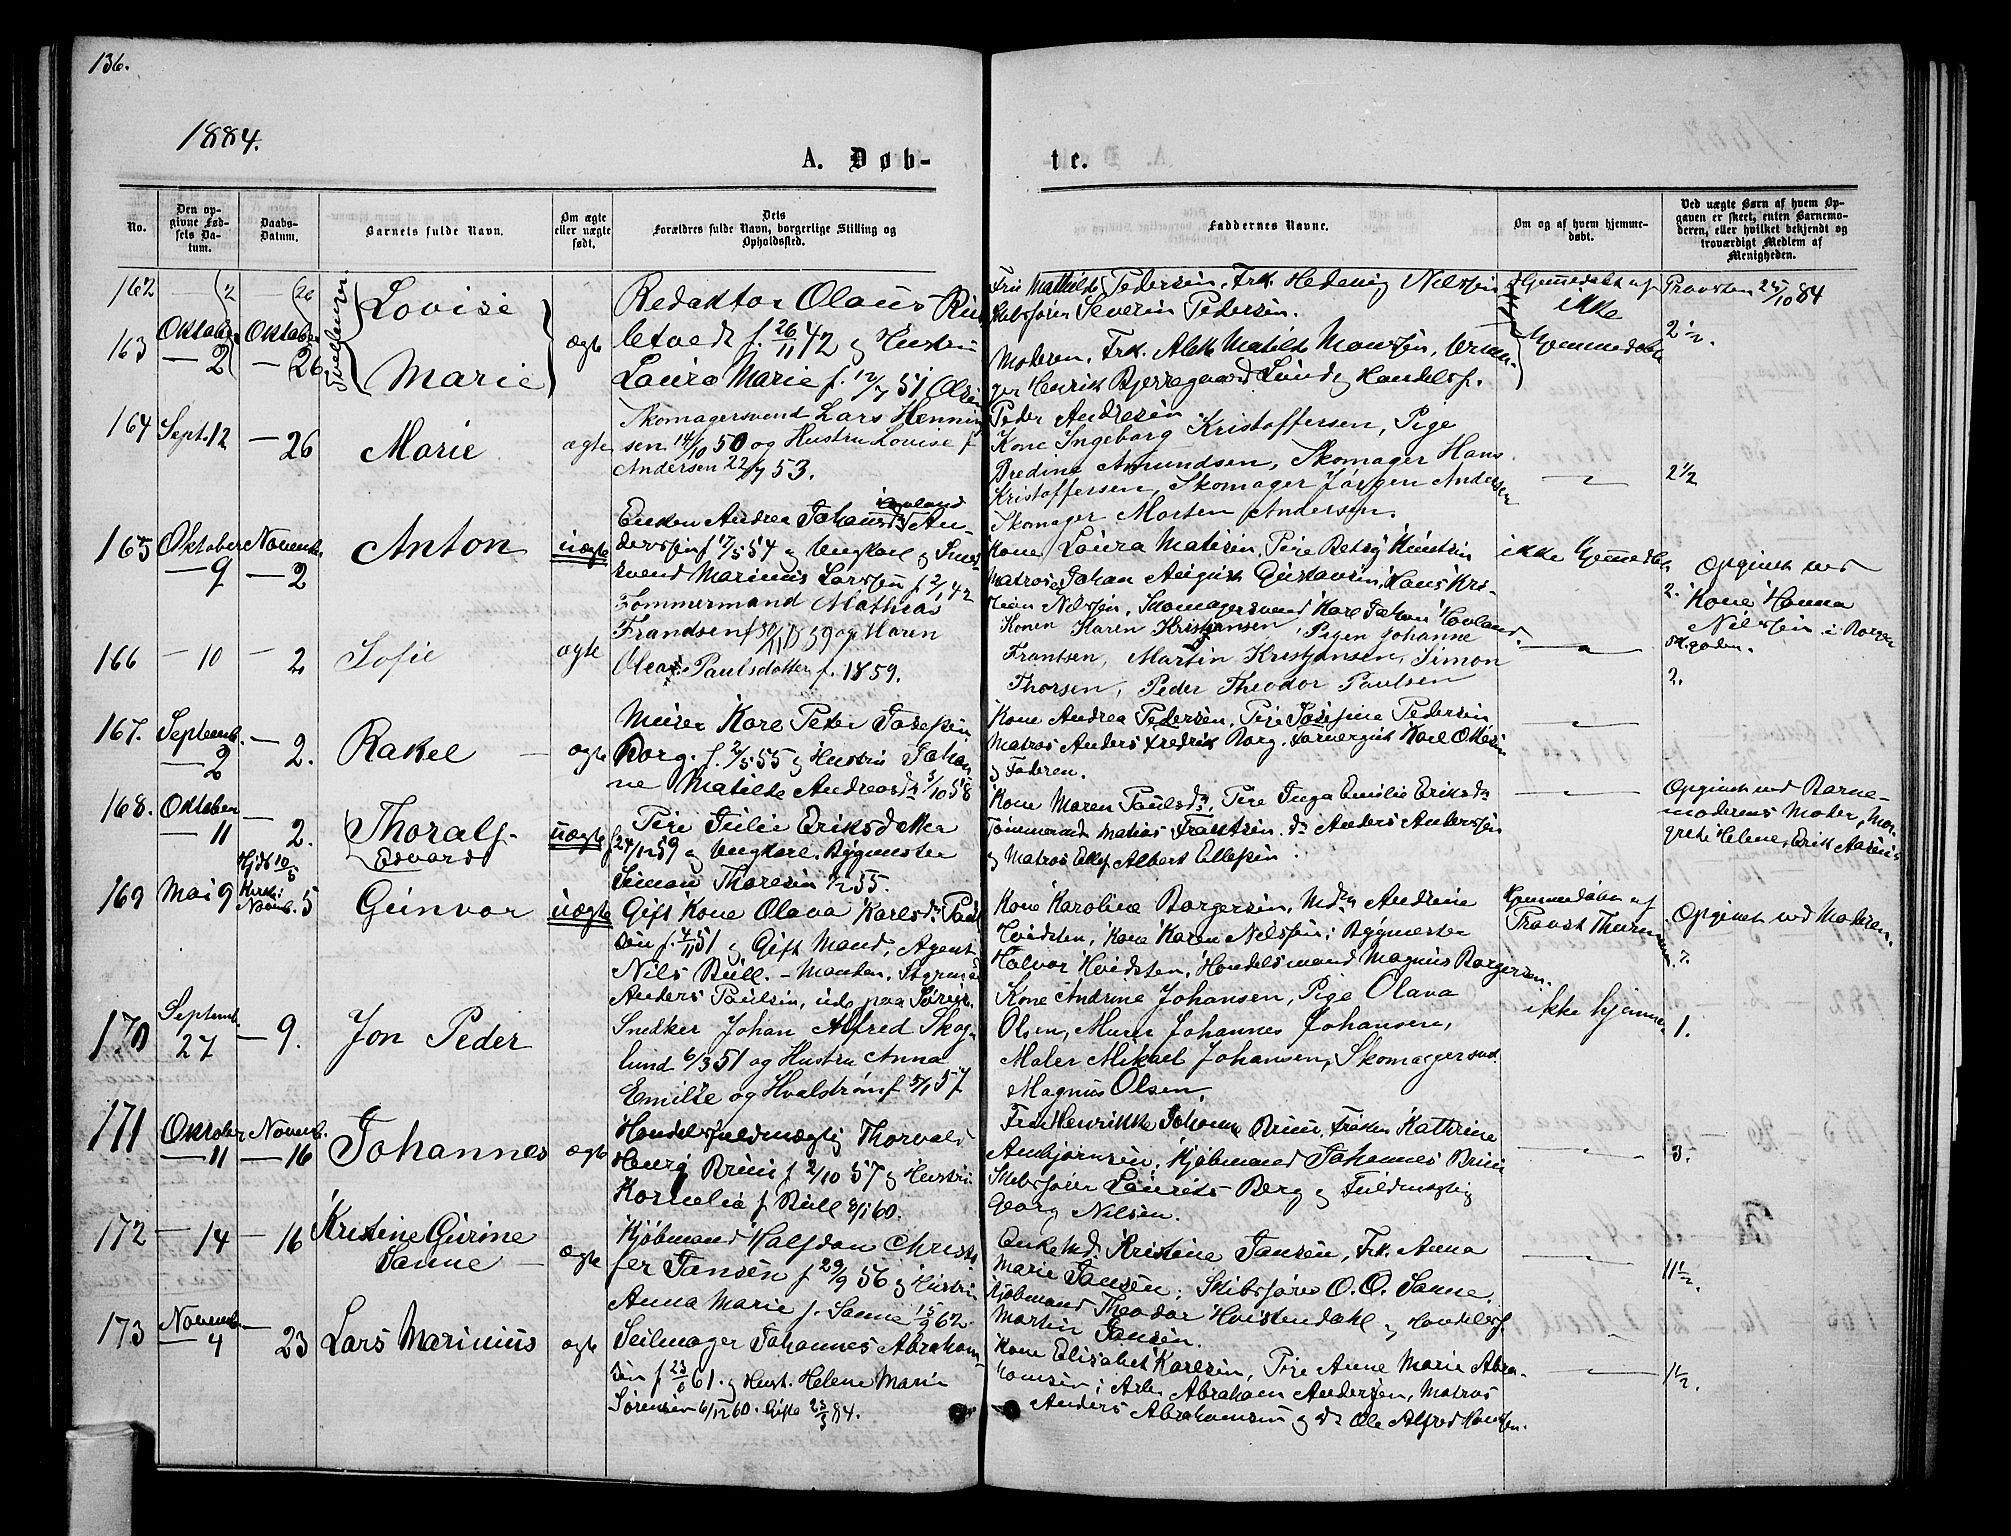 136.
1884.
A. Døb-
te.
No.
Den op-
givne Fød-
sels Da-
tum.
Daabs-
Datum.
Barnets fulde Navn.
Om ægte
eller uægte
født.
Dets
Forældres fulde Navn, borgerlige Stilling og
Opholdssted.
Faddernes Navne.
Om og af hvem hjemme-
døbt.
Ved uægte Børn af hvem Op-
gaven er skeet, enten Barnemo-
deren, eller hvilket bekjendt og
troværdigt Medlem af
Menigheden.
162 — 2 — 26 Lovise
163 Oktober — 2 Oktober — 26 Marie
ægte
Redaktør Olaus
f. 26/11 42 og Hustru
Laura Marie f. 12/7 51 Olsen
Fru Mathilde Pedersen, Frk. Hedevig Nilssen
Skibsfører Severin Pedersen.
Moderen, Frk. Matilde Monssen,
Henrik Bjerregaard Lund, Handelsf.
Peder Andresen
Hjemmedøbt af
Provsten 25/10 84
ikke
Hjemmedøbt
2 1/2.
164 Sept. 12 — 26 Marie ægte
Skomagersvend Lars Hennin
sen 14/10 50 og Hustru Lovise f.
Andersen 22/7 53.
Kone Ingeborg Kristoffersen, Pige
Bredine Amundsen, Skomager Hans
Kristoffersen, Skomager Jørgen Andersen
Skomager Morten Andersen.
— " —
2 1/2
165 Oktober — 9 Novemb. — 2 Anton uægte
Enken Andrea Johansd. An-
derssen f. 17/5 54 og Ungkarl og
svend Marinus Larssen f. 2/1 42
Kone Laura Matisen, Pige Betsy Knutsen
Matros Johan August Gustavsen, Hans Kris-
tian Nilssen, Skomagersvend Karl Johan Hovland.
ikke hjemmedøbt
Opgivet ved
Kone Hanna
Nilssen i
gaden.
2.
166 — 10 — 2 Sofie ægte
Tømmermand Mathias
Frandsen f 30/11 59 og Maren
Olea Paulsdatter f. 1859.
Konen Karen Kristjansen, Pigen Johanne
Frantsen, Martin Kristjansen, Simon
Thorsen, Peder Theodor Paulsen
— " —
2.
167. Septemb. — 2 — 2. Rakel — ægte
Murer Karl Peter Josefsen
Borg. f. 2/5 55 og Hustru Johan-
ne Matilde Andreasdr. 3/10 58
Kone Andrea Pedersen, Pige Josefine Pedersen
Matros Anders Fredrik Borg, Karl Ottesen
og Faderen.
— " —
168. Oktober — 11 — 2. Thoralf
Edvard
uægte
Pige Julie Eriksdatter
f. 24/12 59 og Ungkarl, Bygmester
Simon Thoresen 1/2 55.
Kone Maren Paulsdr, Pige Inga Emilie Eriksdr
Tømmermd. Matias Frantsen, do Anders Anderssen
og Matros Ellef Albert Ellefsen.
— " —
Opgivet ved Barne-
moderens Moder, Mar-
grete Helene, Erik
169 Mai 9 Hjdt 10/5
Kirken
Novemb. 5 Gunvor uægte
Gift Kone Olava Karlsdr. Paul
sen f. 4/11 51 og Gift Mand, Agent
Nils Bull. — Manden, Styrmd
Anders Paulsen, ude paa Søreise.
Kone Karoline Borgersen, Mdm Andrine
Hvidsten, Kone Karen Nilssen, Bygmester
Halvor Hvidsten, Handelsmand Magnus Borgersen.
Hjemmedøbt af
Provst Thurmann.
Opgivet ved Moderen.
170 Septemb. 27 — 9. Jon Peder
Snedker Johan Alfred Skog-
lund 6/3 51 og Hustru Anna
Emilie og Hvalstrøm f 5/1 57
Kone Andrine Johansen, Pige Olava
Olsen, Murer Johannes Johansen,
Maler Mikael Johansen, Skomagersvd.
Magnus Olsen,
ikke hjemme
1.
171 Oktober — 11 Novemb. — 16 Johannes ægte
Handelsfuldmægtig Thorvald
Henry Bruun f 2/10 57 og Hustru
Kornelia f. Bull 8/1 60.
Fru Henrikke Johanne Bruun, Frøken Kathrine
Anbjørnsen, Kjøbmand Johannes Bruun
Skibsfører Laurits Berg og Fuldmægtig
Georg Nilsen.
— " —
3.
172 — 14 — 16 Kristine Gurine
Sanne — ægte
Kjøbmand Halfdan Christo
fer Jansen f 29/9 56 og Hustru
Anna Marie f. Sanne 15/3 62.
Enkemd. Kristine Jansen, Frk. Anna
Marie Jansen, Skibsfører O. O. Sanne.
Kjøbmand Theodor Hvistendahl og Handelsf.
Martin Jansen.
— " —
1 1/2.
173 Novemb. — 4 — 23 Lars Marinius ægte
Seilmager Johannes Abraham-
sen f 23/6 61. og Hust. Helene Marie
Sørensen 6/12 60. Gifte 23/3 84.
Kone Elisabet Karlsen, Pige Anne Marie Abra-
hamsen, Arb. Abraham Andersen, Matros
Anders Abrahamsen og do Ole Alfred Hanssen.
— " —
1 1/2.